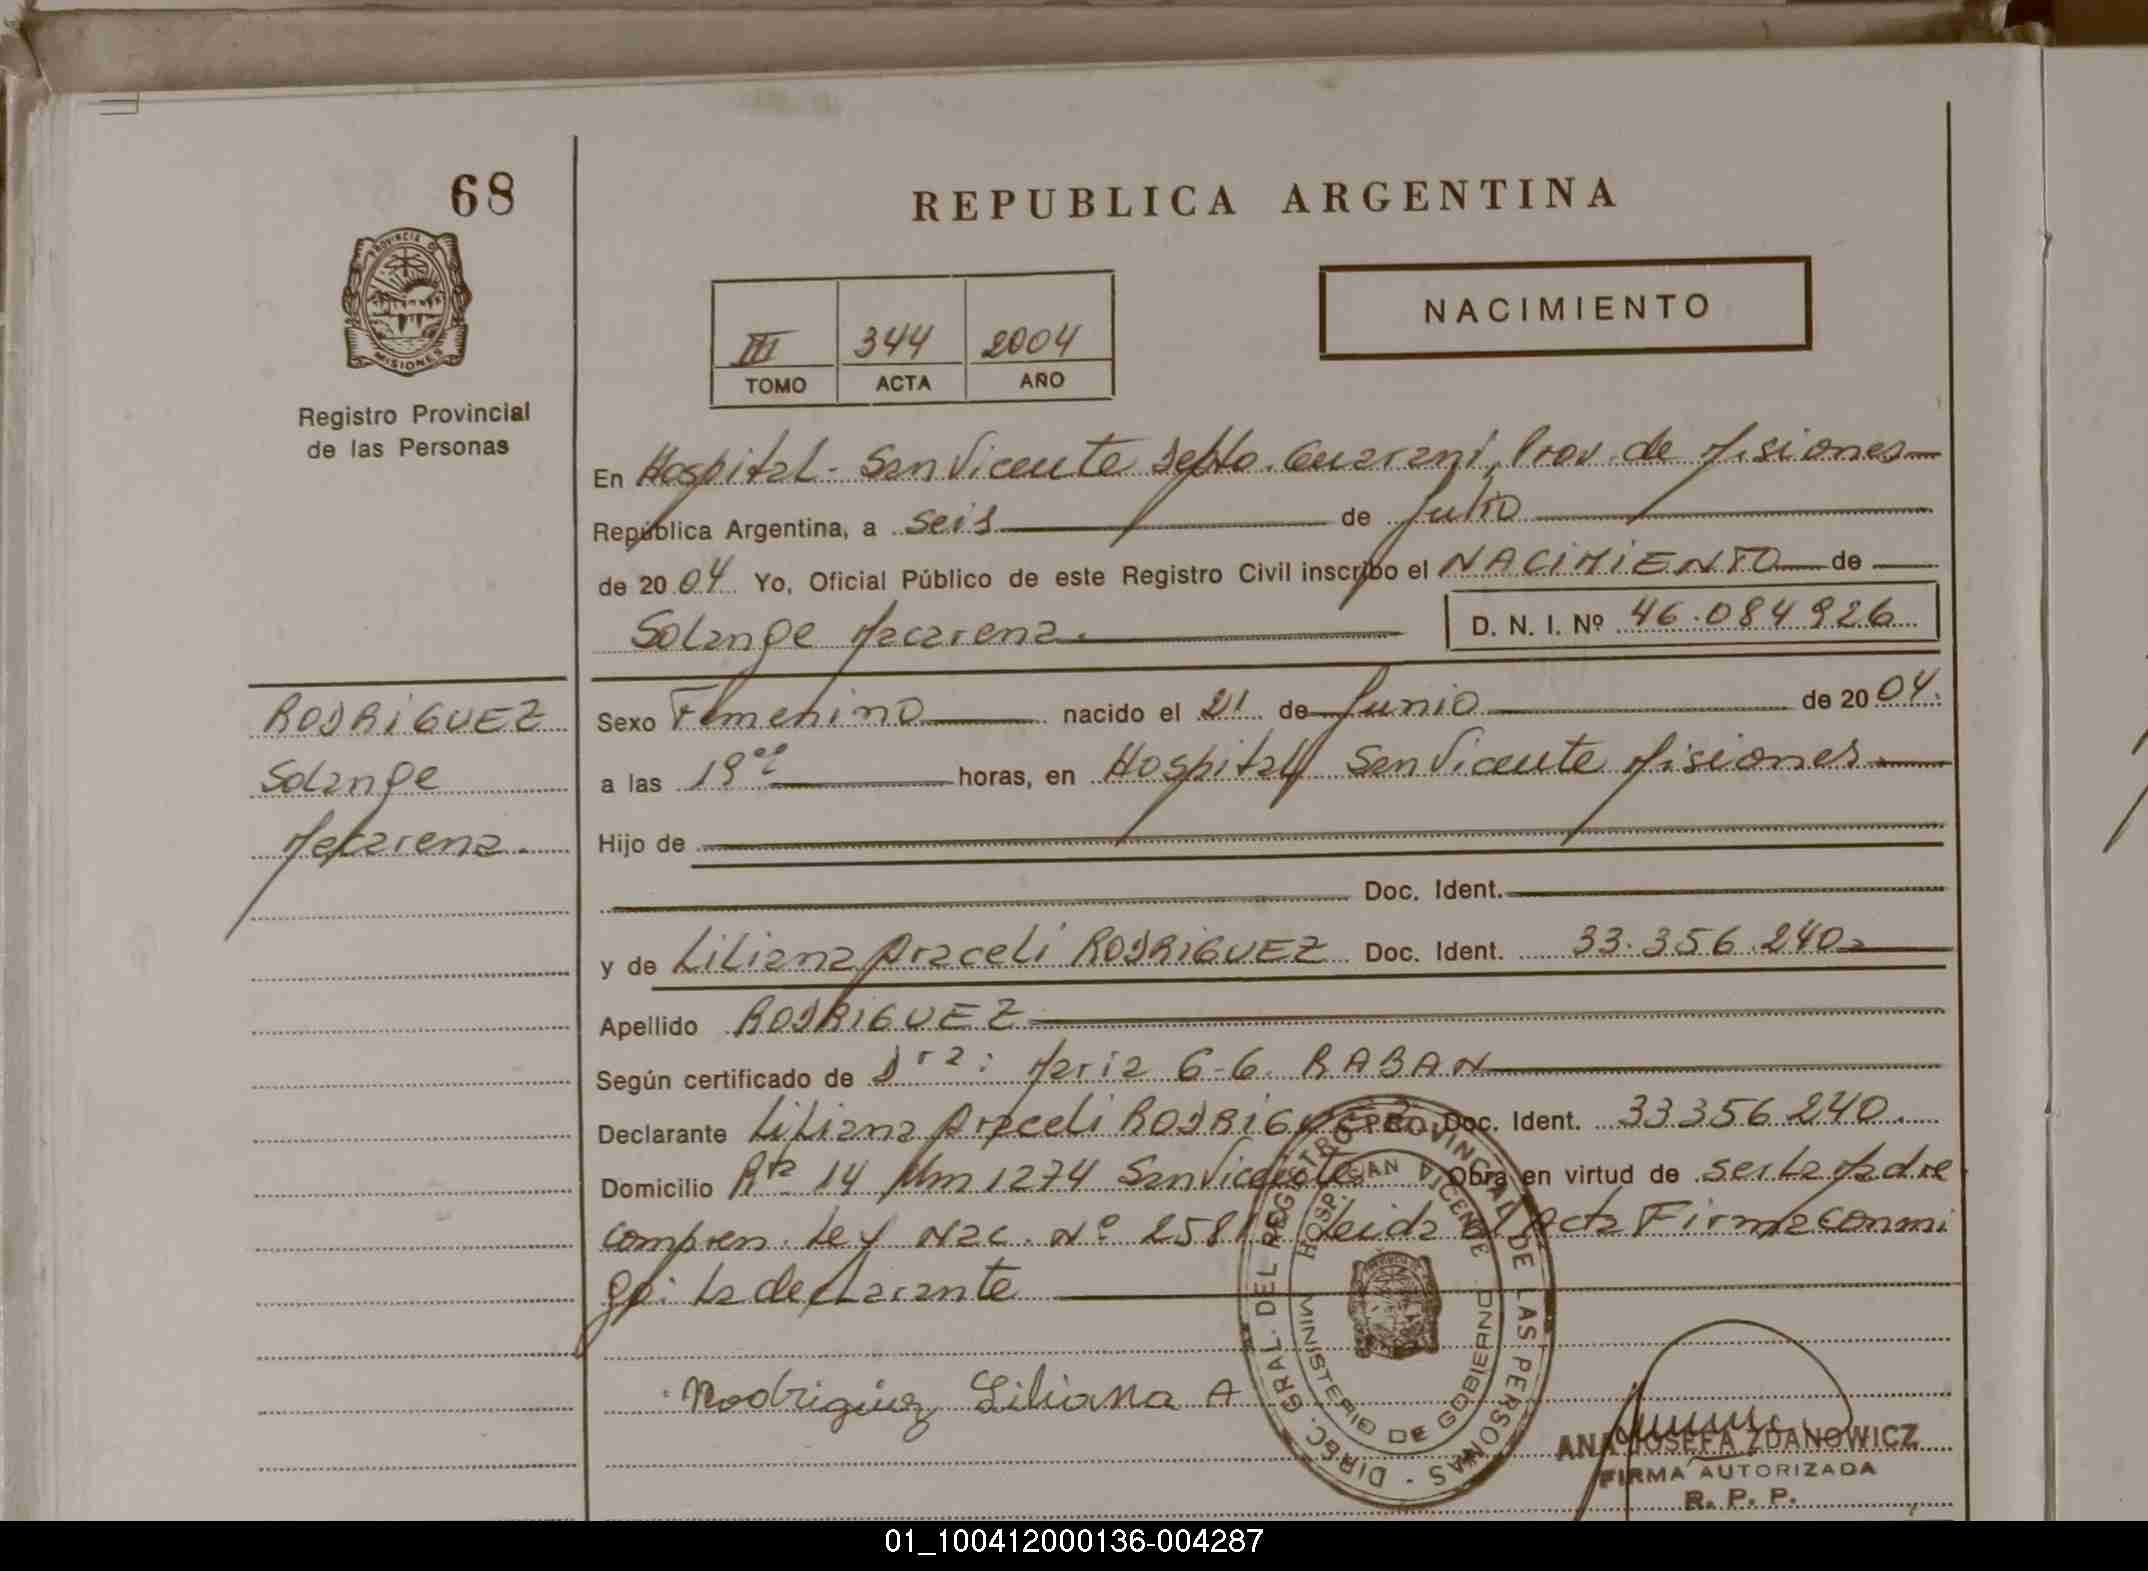 68
PROVINCIA DE
MISIONES
Registro Provincial
de las Personas
REPUBLICA ARGENTINA
NACIMIENTO
III 344 2004
TOMO ACTA AÑO
En Hospital - San Vicente Depto. Guaraní, Prov. de Misiones
República Argentina, a seis de Julio
de 2004 Yo, Oficial Público de este Registro Civil inscribo el NACIMIENTO de
Solange Macarena. D. N. I. Nº 46.084926
RODRIGUEZ
Solange
Macarena.
Sexo Femenino nacido el 21 de Junio de 2004.
a las horas, en Hospital San Vicente Misiones
Hijo de
Doc. Ident.
y de Liliana Araceli RODRIGUEZ Doc. Ident. 33.356.240
Apellido RODRIGUEZ
Según certificado de Dra: Maria G. G. RABAN
Declarante Liliana Araceli RODRIGUEZ Doc. Ident. 33356240.
Domicilio Rta 14 Km 1274 San Vicente Obra en virtud de ser la Madre
compren. Ley Nac. Nº Leida el Acta Firma conmi
go: La declarante
Rodriguez Liliana A
DIREC. GRAL. DEL REGISTRO PROVINCIAL DE LAS PERSONAS -
HOSP. SAN VICENTE
MINISTERIO DE GOBIERNO
ANA JOSEFA ZDANOWICZ
FIRMA AUTORIZADA
R. P. P.
01_100412000136-004287